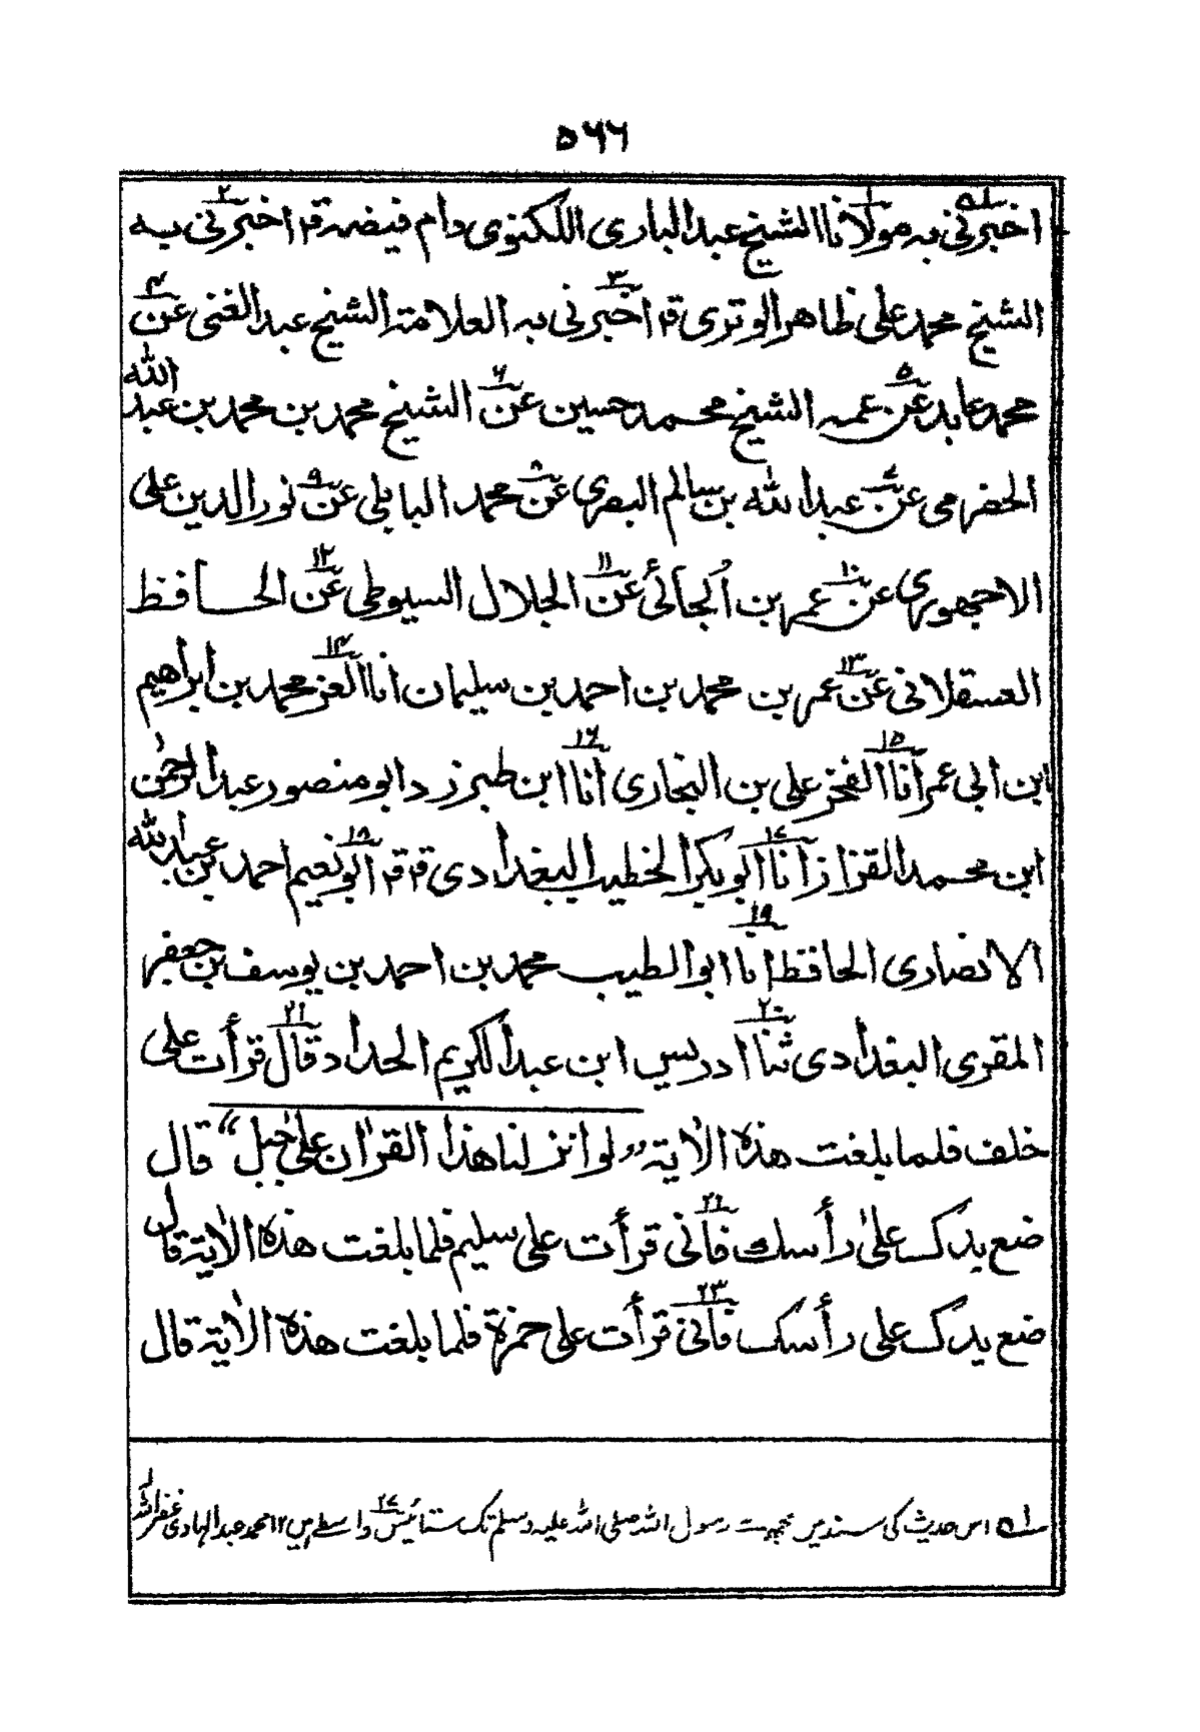 ۵۶۶
اخبرنی بہ مولانا الشیخ عبدالباری اللکنوی دام فیضہ قم اخبرنی بہ
الشیخ محمد علی ظاھر الوتری قم اخبرنی بہ العلامۃ الشیخ عبدالغنی عن
محمد عابد عن عمہ الشیخ محمد حسین عن الشیخ محمد بن محمد بن عبد اللہ
الحضرمی عن عبداللہ بن سالم البصری عن محمد البابلی عن نور الدین علی
الاجھوری عن عمر بن اُلجائی عن الجلال السیوطی عن الحافظ
العسقلانی عن عمر بن محمد بن احمد بن سلیمان انا العز محمد بن ابراھیم
ابن ابی عمر انا الفخر علی بن البخاری انا ابن طبرزد ابو منصور عبدالرحمٰن
ابن محمد القزاز انا ابو بکر الخطیب البغدادی قم قم ابو نعیم احمد بن عبد اللہ
الانصاری الحافظ انا ابو الطیب محمد بن احمد بن یوسف بن جعفر
المقری البغدادی ثنا ادریس ابن عبدالکریم الحداد قال قرأت علی
خلف فلما بلغت ھذہ الاٰیۃ ”لو انزلنا ھذا القراٰن علیٰ جبل“ قال
ضع یدک علیٰ رأسک فانی قرأت علی سلیم فلما بلغت ھذہ الاٰیۃ قال
ضع یدک علی رأسک فانی قرأت علی حمزۃ فلما بلغت ھذہ الاٰیۃ قال
لہ اس حدیث کی سند میں مجھ سے رسول اللہ صلی اللہ علیہ وسلم تک ستائیس ۲۷ واسطے ہیں ۱۲ محمد عبدالہادی غفر اللہ لہ